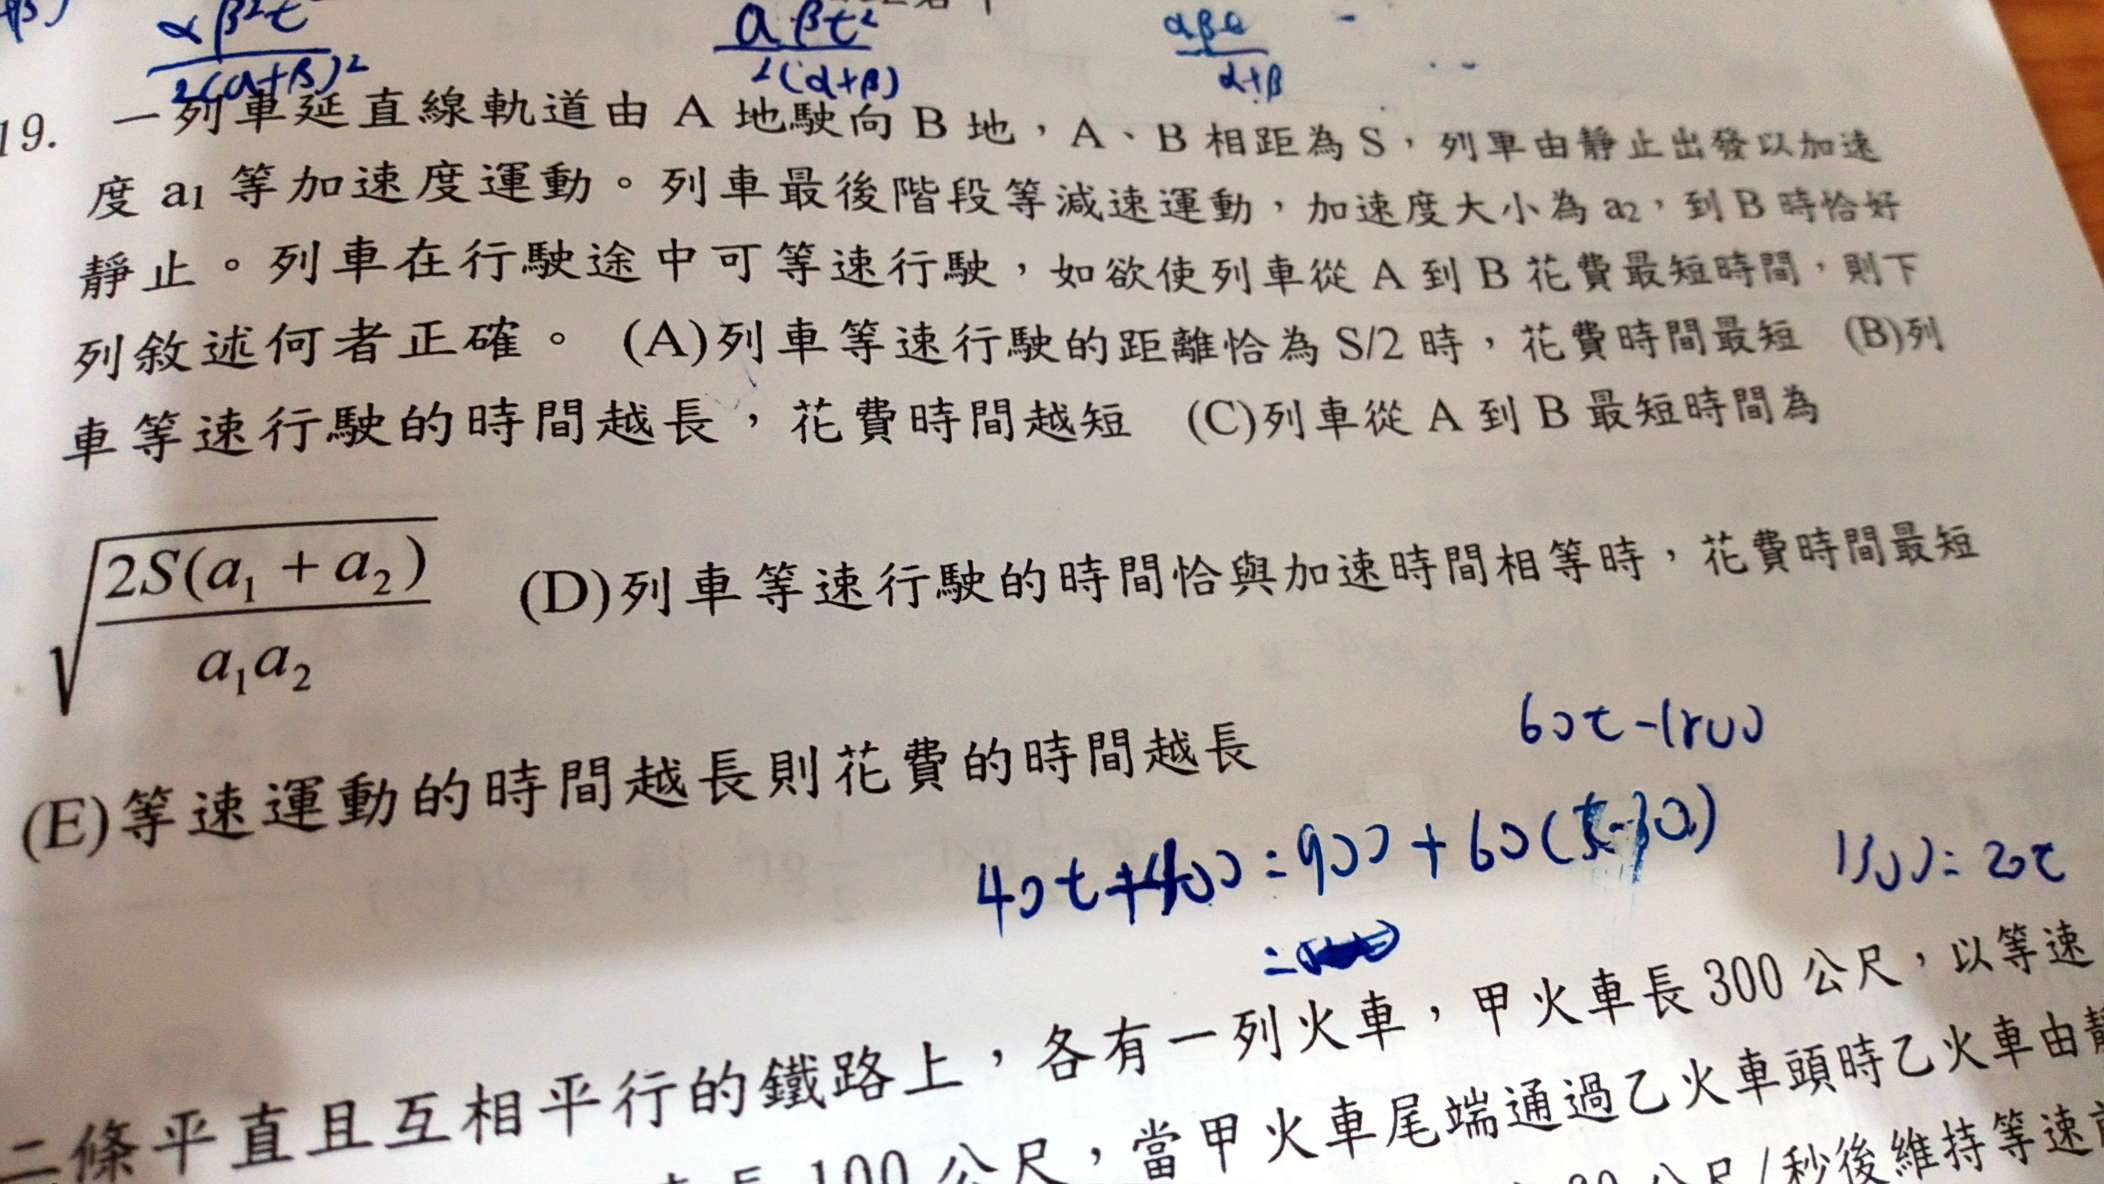 αβ²t / 2(α+β)²
αβt² / 2(α+β)
αβt / α+β
19. 一列車延直線軌道由 A 地駛向 B 地，A、B 相距為 S，列車由靜止出發以加速
度 a₁ 等加速度運動。列車最後階段等減速運動，加速度大小為 a₂，到 B 時恰好
靜止。列車在行駛途中可等速行駛，如欲使列車從 A 到 B 花費最短時間，則下
列敘述何者正確。 (A)列車等速行駛的距離恰為 S/2 時，花費時間最短 (B)列
車等速行駛的時間越長，花費時間越短 (C)列車從 A 到 B 最短時間為
√(2S(a₁ + a₂) / a₁a₂) (D)列車等速行駛的時間恰與加速時間相等時，花費時間最短
(E)等速運動的時間越長則花費的時間越長
60t-1800
40t+400=900+60(t-30)
=20t
二條平直且互相平行的鐵路上，各有一列火車，甲火車長 300 公尺，以等速
100 公尺，當甲火車尾端通過乙火車頭時乙火車由靜
公尺/秒後維持等速